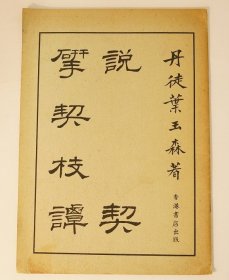 丹徒葉玉森著
香港書店出版
說契
揅契枝譚